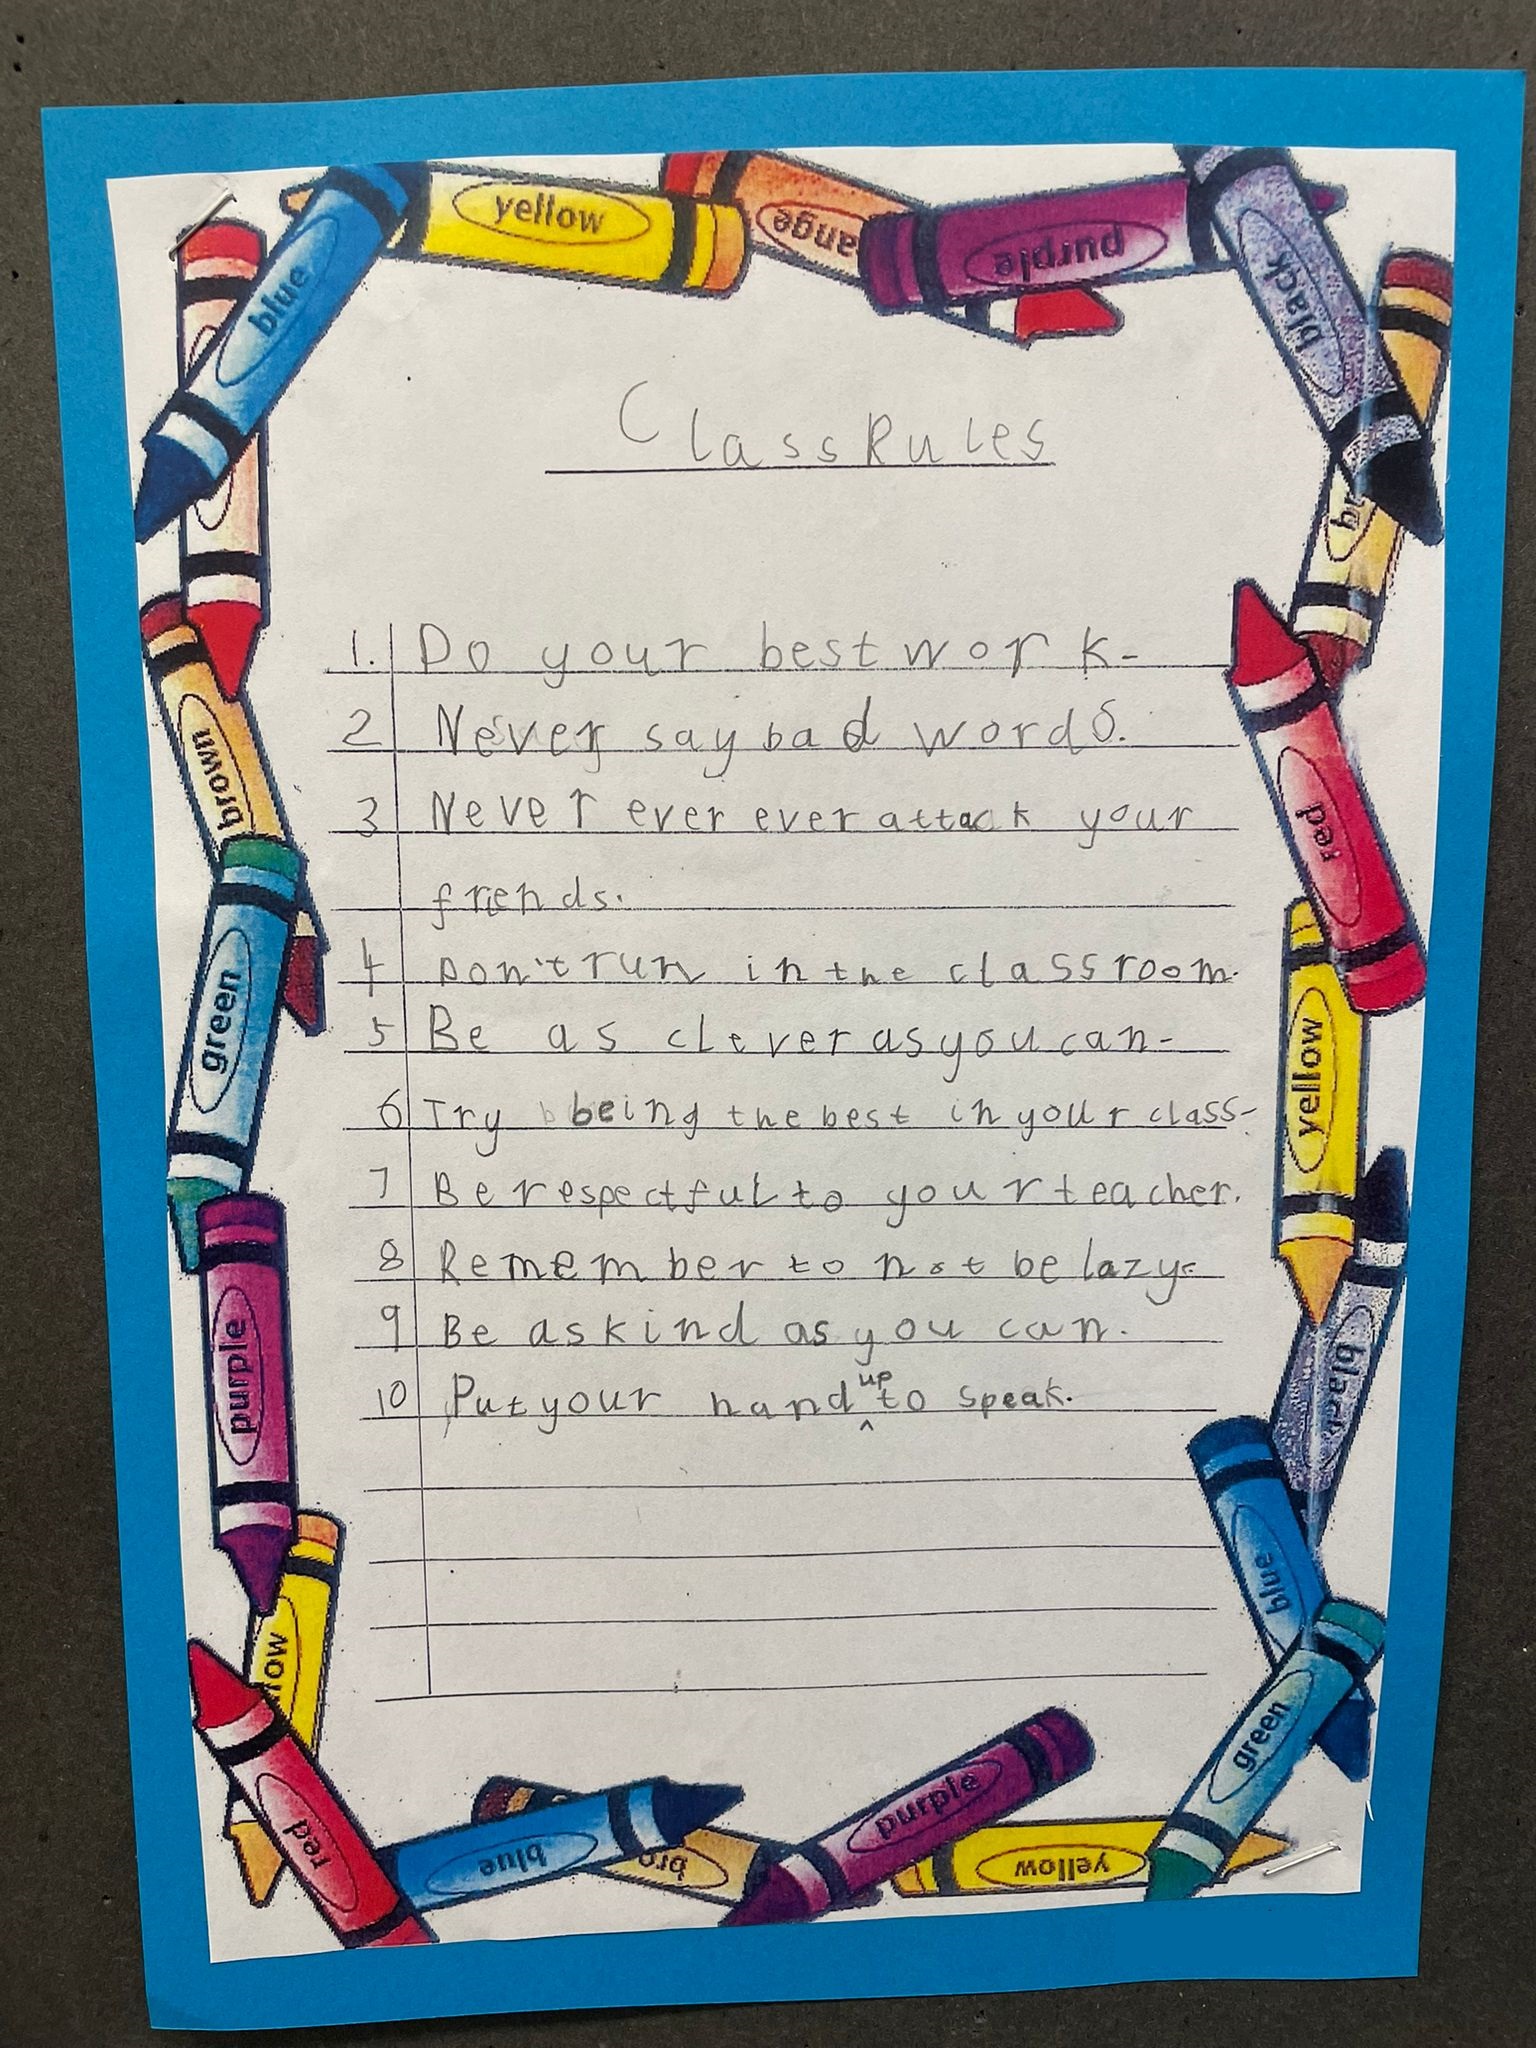 blue
yellow
ange
purple
black
Class Rules
br
1. Do your best work.
2 Never say bad words.
red
brown
3 Never ever ever attack your
friends.
4 Don't run in the classroom.
green
5 Be as clever as you can.
yellow
6 Try being the best in your class.
7 Be respectful to your teacher.
8 Remember to not be lazy.
9 Be as kind as you can.
purple
black
10 Put your hand up to speak.
blue
low
green
red
blue
bro
purple
yellow